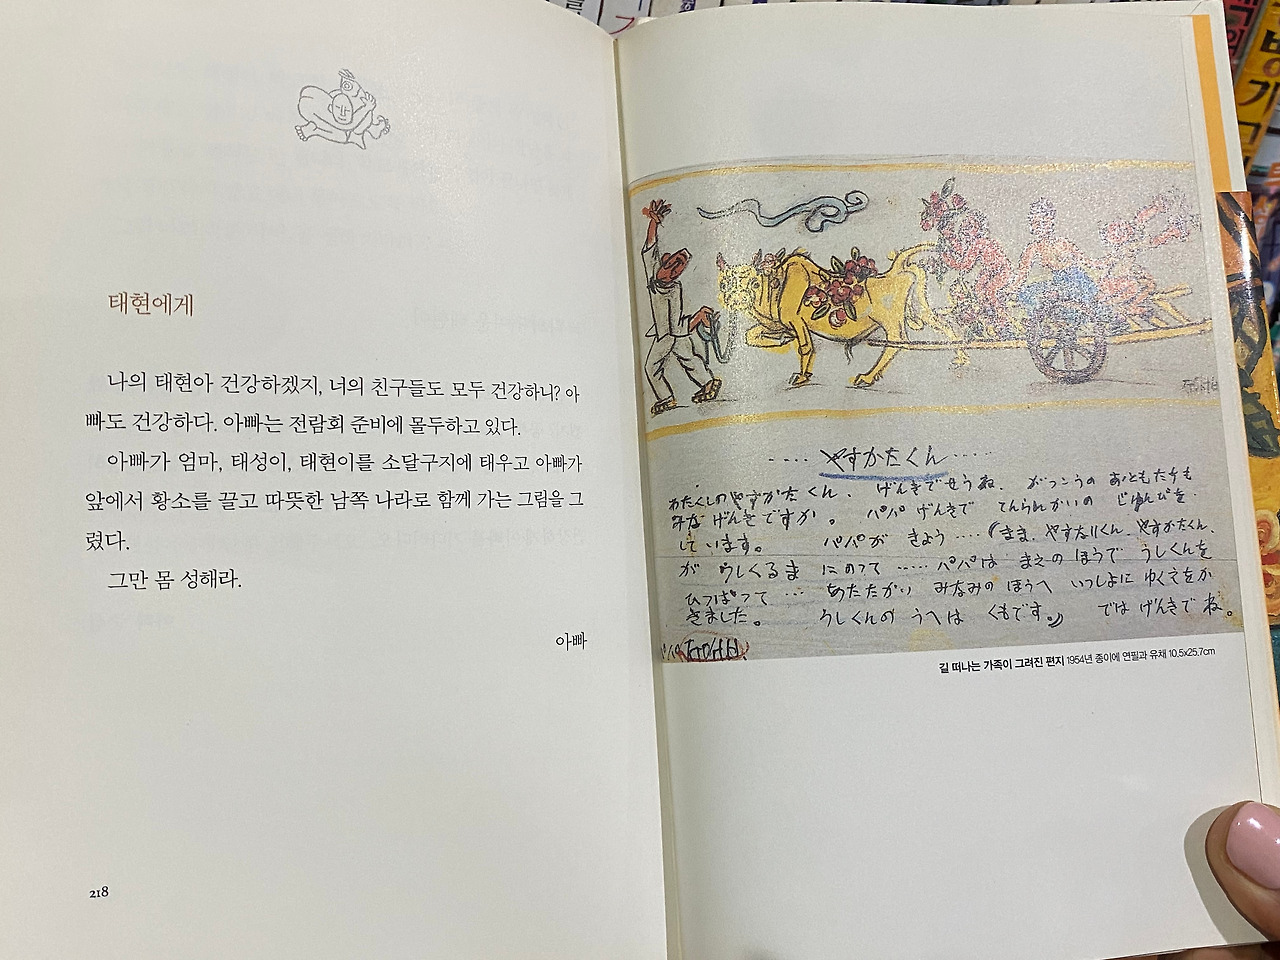 태현에게
나의 태현아 건강하겠지, 너의 친구들도 모두 건강하니? 아
빠도 건강하다. 아빠는 전람회 준비에 몰두하고 있다.
아빠가 엄마, 태성이, 태현이를 소달구지에 태우고 아빠가
앞에서 황소를 끌고 따뜻한 남쪽 나라로 함께 가는 그림을 그
렸다.
그만 몸 성해라.
아빠
218
‥‥ やすかたくん ‥‥
わたくしの やすかたくん、げんきでせうね。がっこうの おともたちも
みな げんきですか。パパ げんきで てんらんかいの じゅんびを
しています。パパが きょう‥‥(まま、やすなりくん、やすかたくん、
が うしくるま にのって ‥‥‥ パパは まえの ほうで うしくんを
ひっぱって ‥‥ あたたかい みなみの ほうへ いっしょに ゆくえをか
きました。うしくんの うへは くもです。) では げんきで ね。
길 떠나는 가족이 그려진 편지 1954년 종이에 연필과 유채 10.5x25.7cm